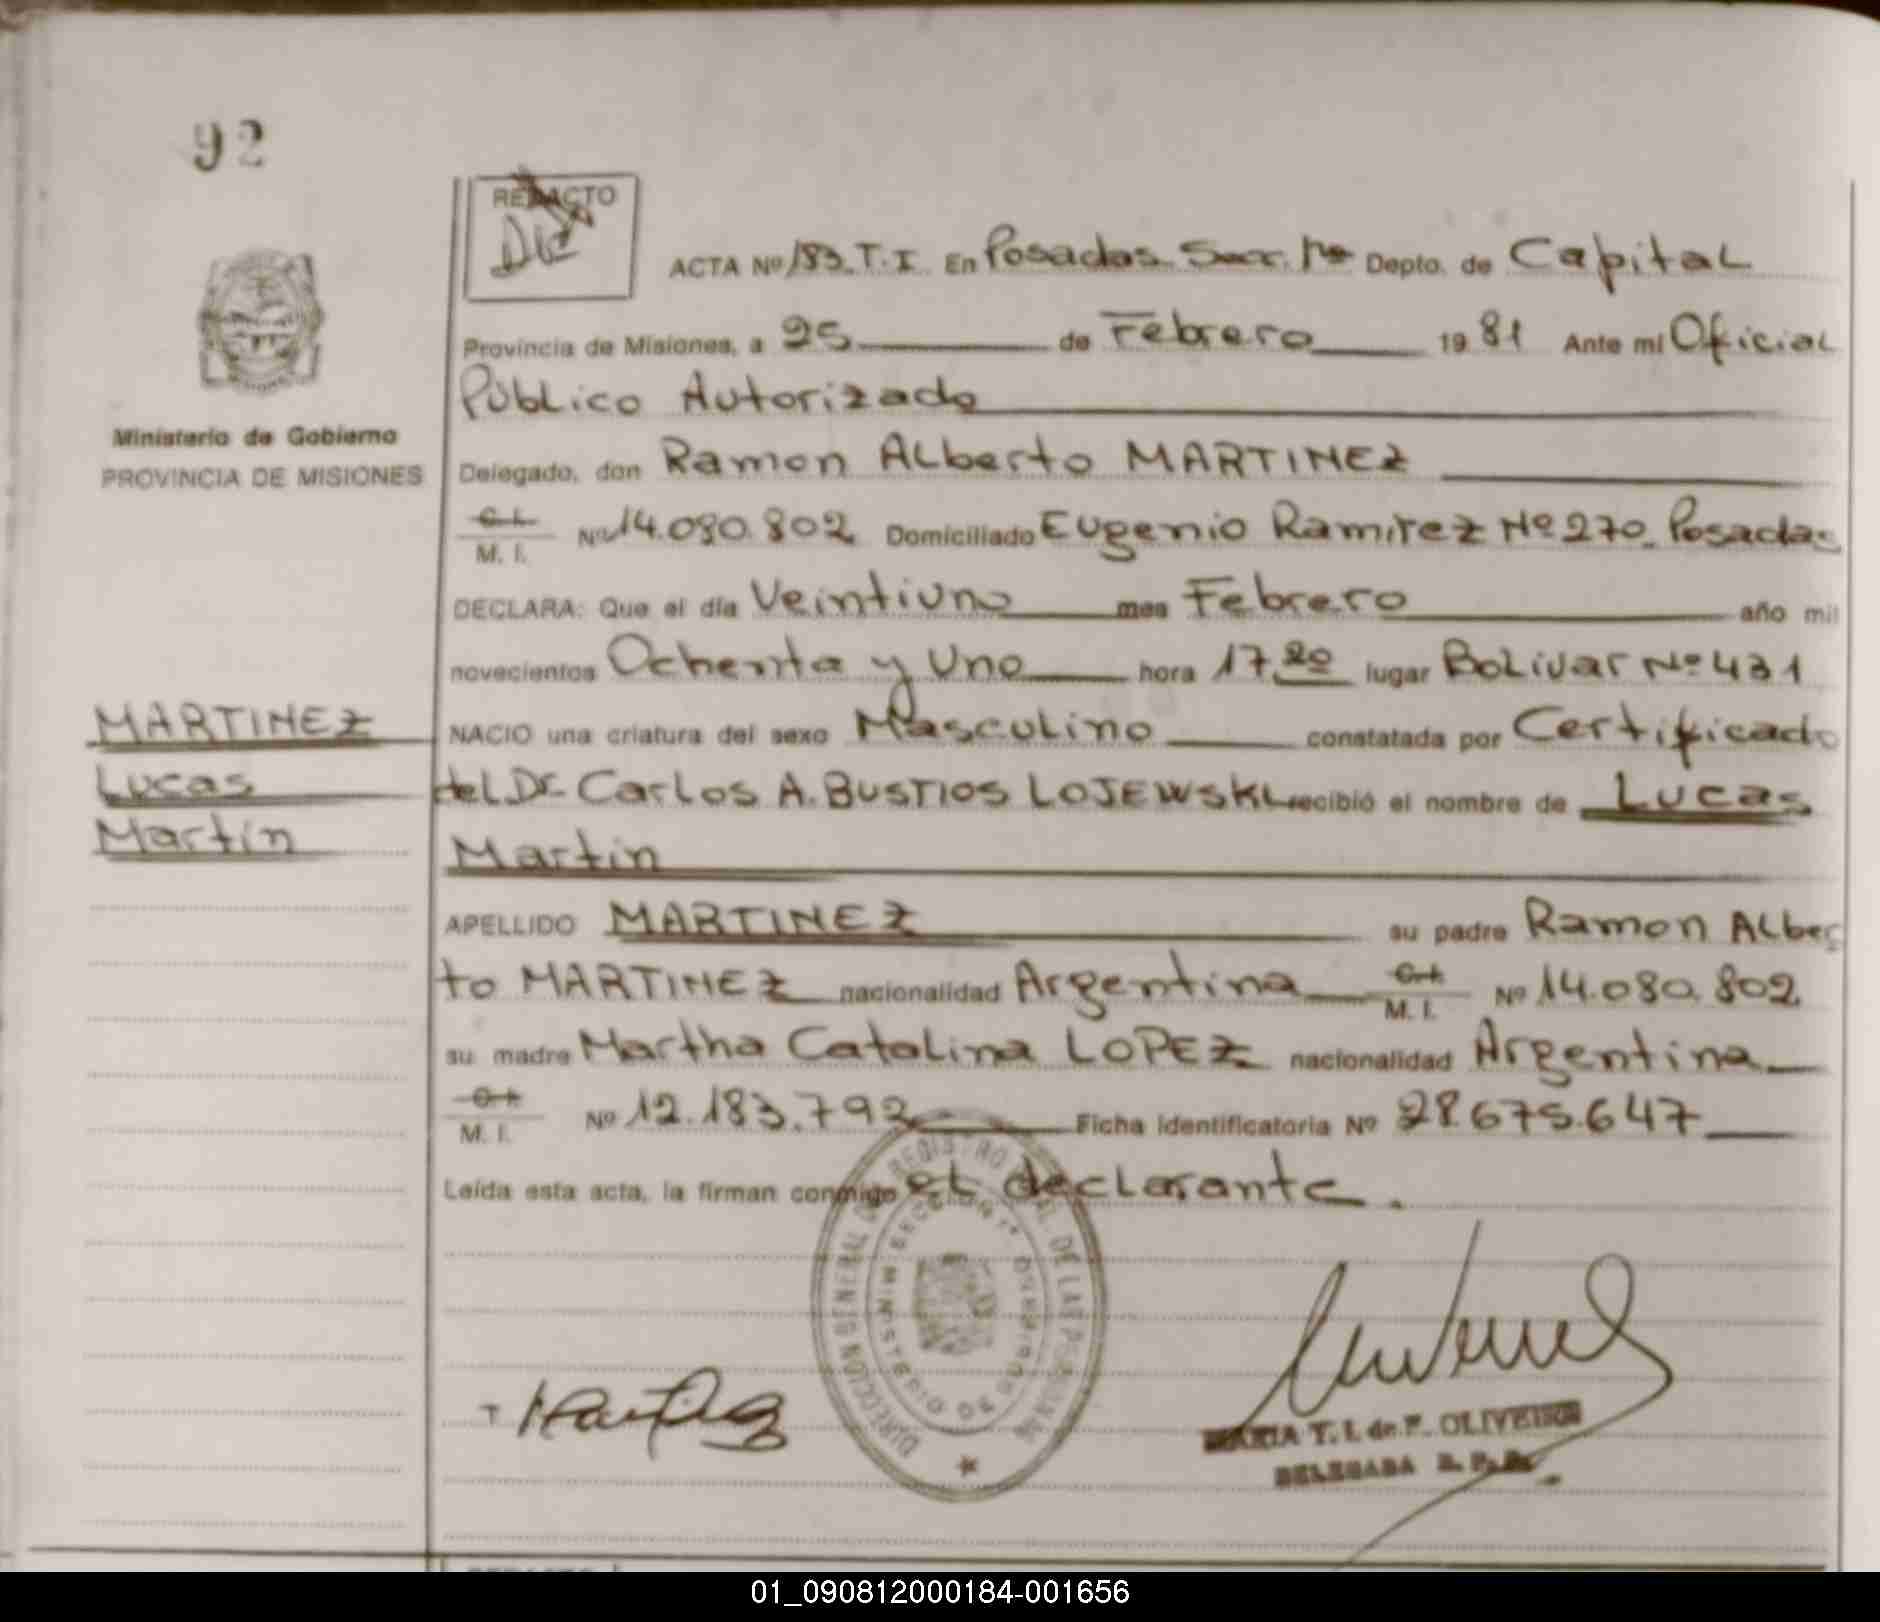 92
REDACTO
ACTA Nº 183. T. I. En Posadas Secc. 1ra Depto. de Capital
Provincia de Misiones, a 25 de Febrero 1981 Ante mi Oficial
Público Autorizado
Ministerio de Gobierno
PROVINCIA DE MISIONES
Delegado, don Ramon Alberto MARTINEZ
C. I.
M. I. Nº 14.080.802 Domiciliado Eugenio Ramirez Nº 270. Posadas
DECLARA: Que el día Veintiuno mes Febrero año mil
novecientos Ochenta y Uno hora 17,20 lugar Bolivar Nº 431
MARTINEZ
Lucas
Martín
NACIO una criatura del sexo Masculino constatada por Certificado
del Dr. Carlos A. BUSTIOS LOJEWSKI recibió el nombre de Lucas
Martin
APELLIDO MARTINEZ su padre Ramon Alber
to MARTINEZ nacionalidad Argentina C. I.
M. I. Nº 14.080.802
su madre Martha Catalina LOPEZ nacionalidad Argentina
C. I.
M. I. Nº 12.183.792 Ficha identificatoria Nº 28.675.647
Leída esta acta, la firman conmigo el declarante.
DIRECCION GENERAL DEL REGISTRO DE LAS PERSONAS
SECCION 1ª
MARIA T. I. de F. OLIVEIRA
DELEGADA R. P. P.
01_090812000184-001656